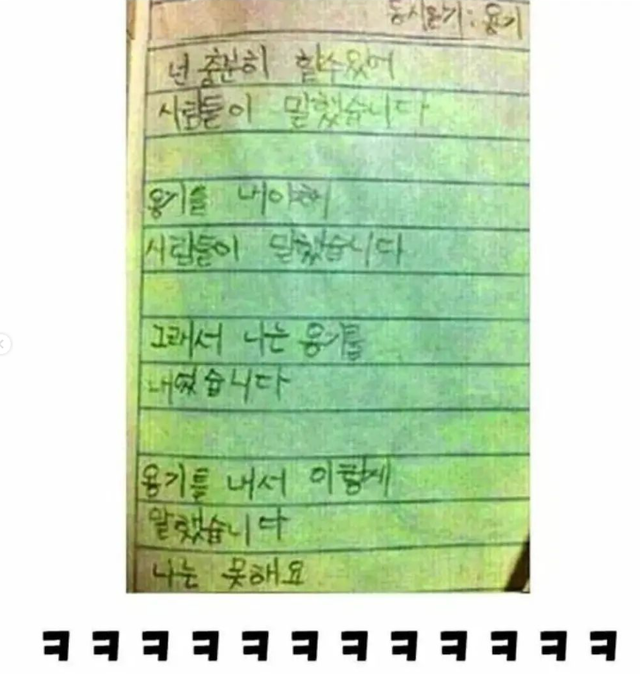 : 용기
넌 충분히 할수있어
사람들이 말했습니다
용기를 내야해
사람들이 말했습니다
그래서 나는 용기를
내었습니다
용기를 내서 이렇게
말했습니다
나는 못해요
ㅋㅋㅋㅋㅋㅋㅋㅋㅋㅋㅋㅋ